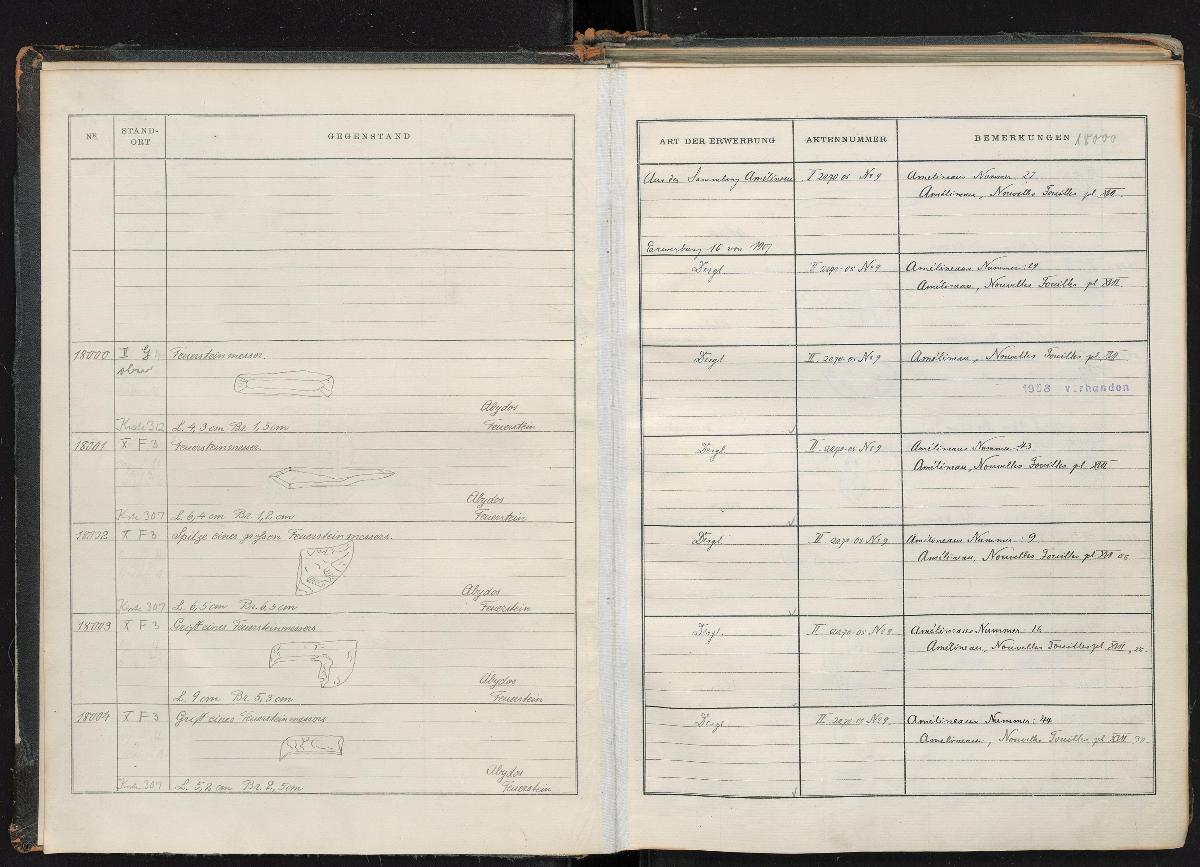 Nº
STAND-
ORT
GEGENSTAND
18000 II G
Feuersteinmesser.
Abydos
Kiste 312 L. 4,3 cm Br. 1,5 cm Feuerstein
18001 X F 3 Feuersteinmesser.
Abydos
Kiste 307 L. 6,4 cm Br. 1,2 cm Feuerstein
18002 X F 3 Spitze eines großen Feuersteinmessers.
Abydos
Kiste 307 L. 6,5 cm Br. 6,5 cm Feuerstein
18003 X F 3 Griff eines Feuersteinmessers
Abydos
L. 9 cm Br. 5,3 cm Feuerstein
18004 X F 3 Griff eines Feuersteinmessers
Abydos
Kiste 307 L. 5,2 cm Br. 2,5 cm Feuerstein
ART DER ERWERBUNG AKTENNUMMER BEMERKUNGEN 18000
Aus der Sammlung Amélineau II 2070.05 No 9 Amélineaus Nummer 27
Amélineau, Nouvelles Fouilles pl. XVII.
Erwerbung 16 von 1907
Desgl. II 2070.05 No 9 Amélineaus Nummer: 29
Amélineau, Nouvelles Fouilles pl XVII.
Desgl. II 2070.05 No 9 Amélineau, Nouvelles Fouilles pl. XVII
1958 vorhanden
Desgl. II 2070.05 No 9 Amélineaus Nummer: 43
Amélineau, Nouvelles Fouilles pl. XVII
Desgl. II 2070.05 No 9 Amélineaus Nummer: 9.
Amélineau, Nouvelles Fouilles pl XVII
Desgl. II 2070.05 No 9 Amélineaus Nummer: 16
Amélineau, Nouvelles Fouilles pl XVII
Desgl. II 2070.05 No 9. Amélineaus Nummer: 44
Amélineau, Nouvelles Fouilles pl XVII 30.